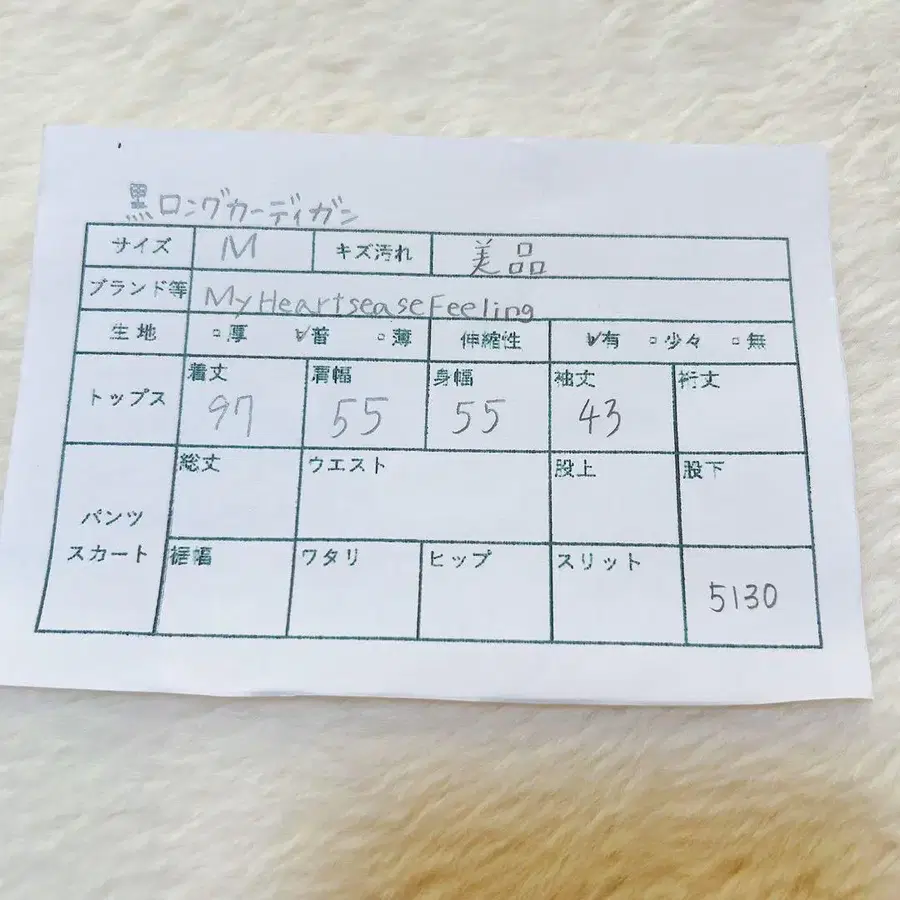 黒ロングカーディガン
サイズ M キズ汚れ 美品
ブランド等 MyHeartseaseFeeling
生地 □厚 ☑普 □薄 伸縮性 ☑有 □少々 □無
トップス 着丈 肩幅 身幅 袖丈 裄丈
97 55 55 43
総丈 ウエスト 股上 股下
パンツ
スカート 裾幅 ワタリ ヒップ スリット
5130